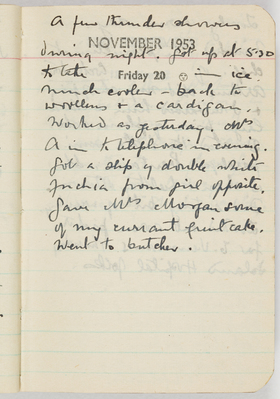 A few thunder showers
NOVEMBER 1953
during night. Got up at 5.30
Friday 20
to take in ice.
Much cooler – back to
woollens & a cardigan.
Worked as yesterday. Mrs
A in to telephone in evening.
Got a slip of double white
fuchia from girl opposite.
Gave Mrs Morgan some
of my currant fruit cake.
Went to butcher.